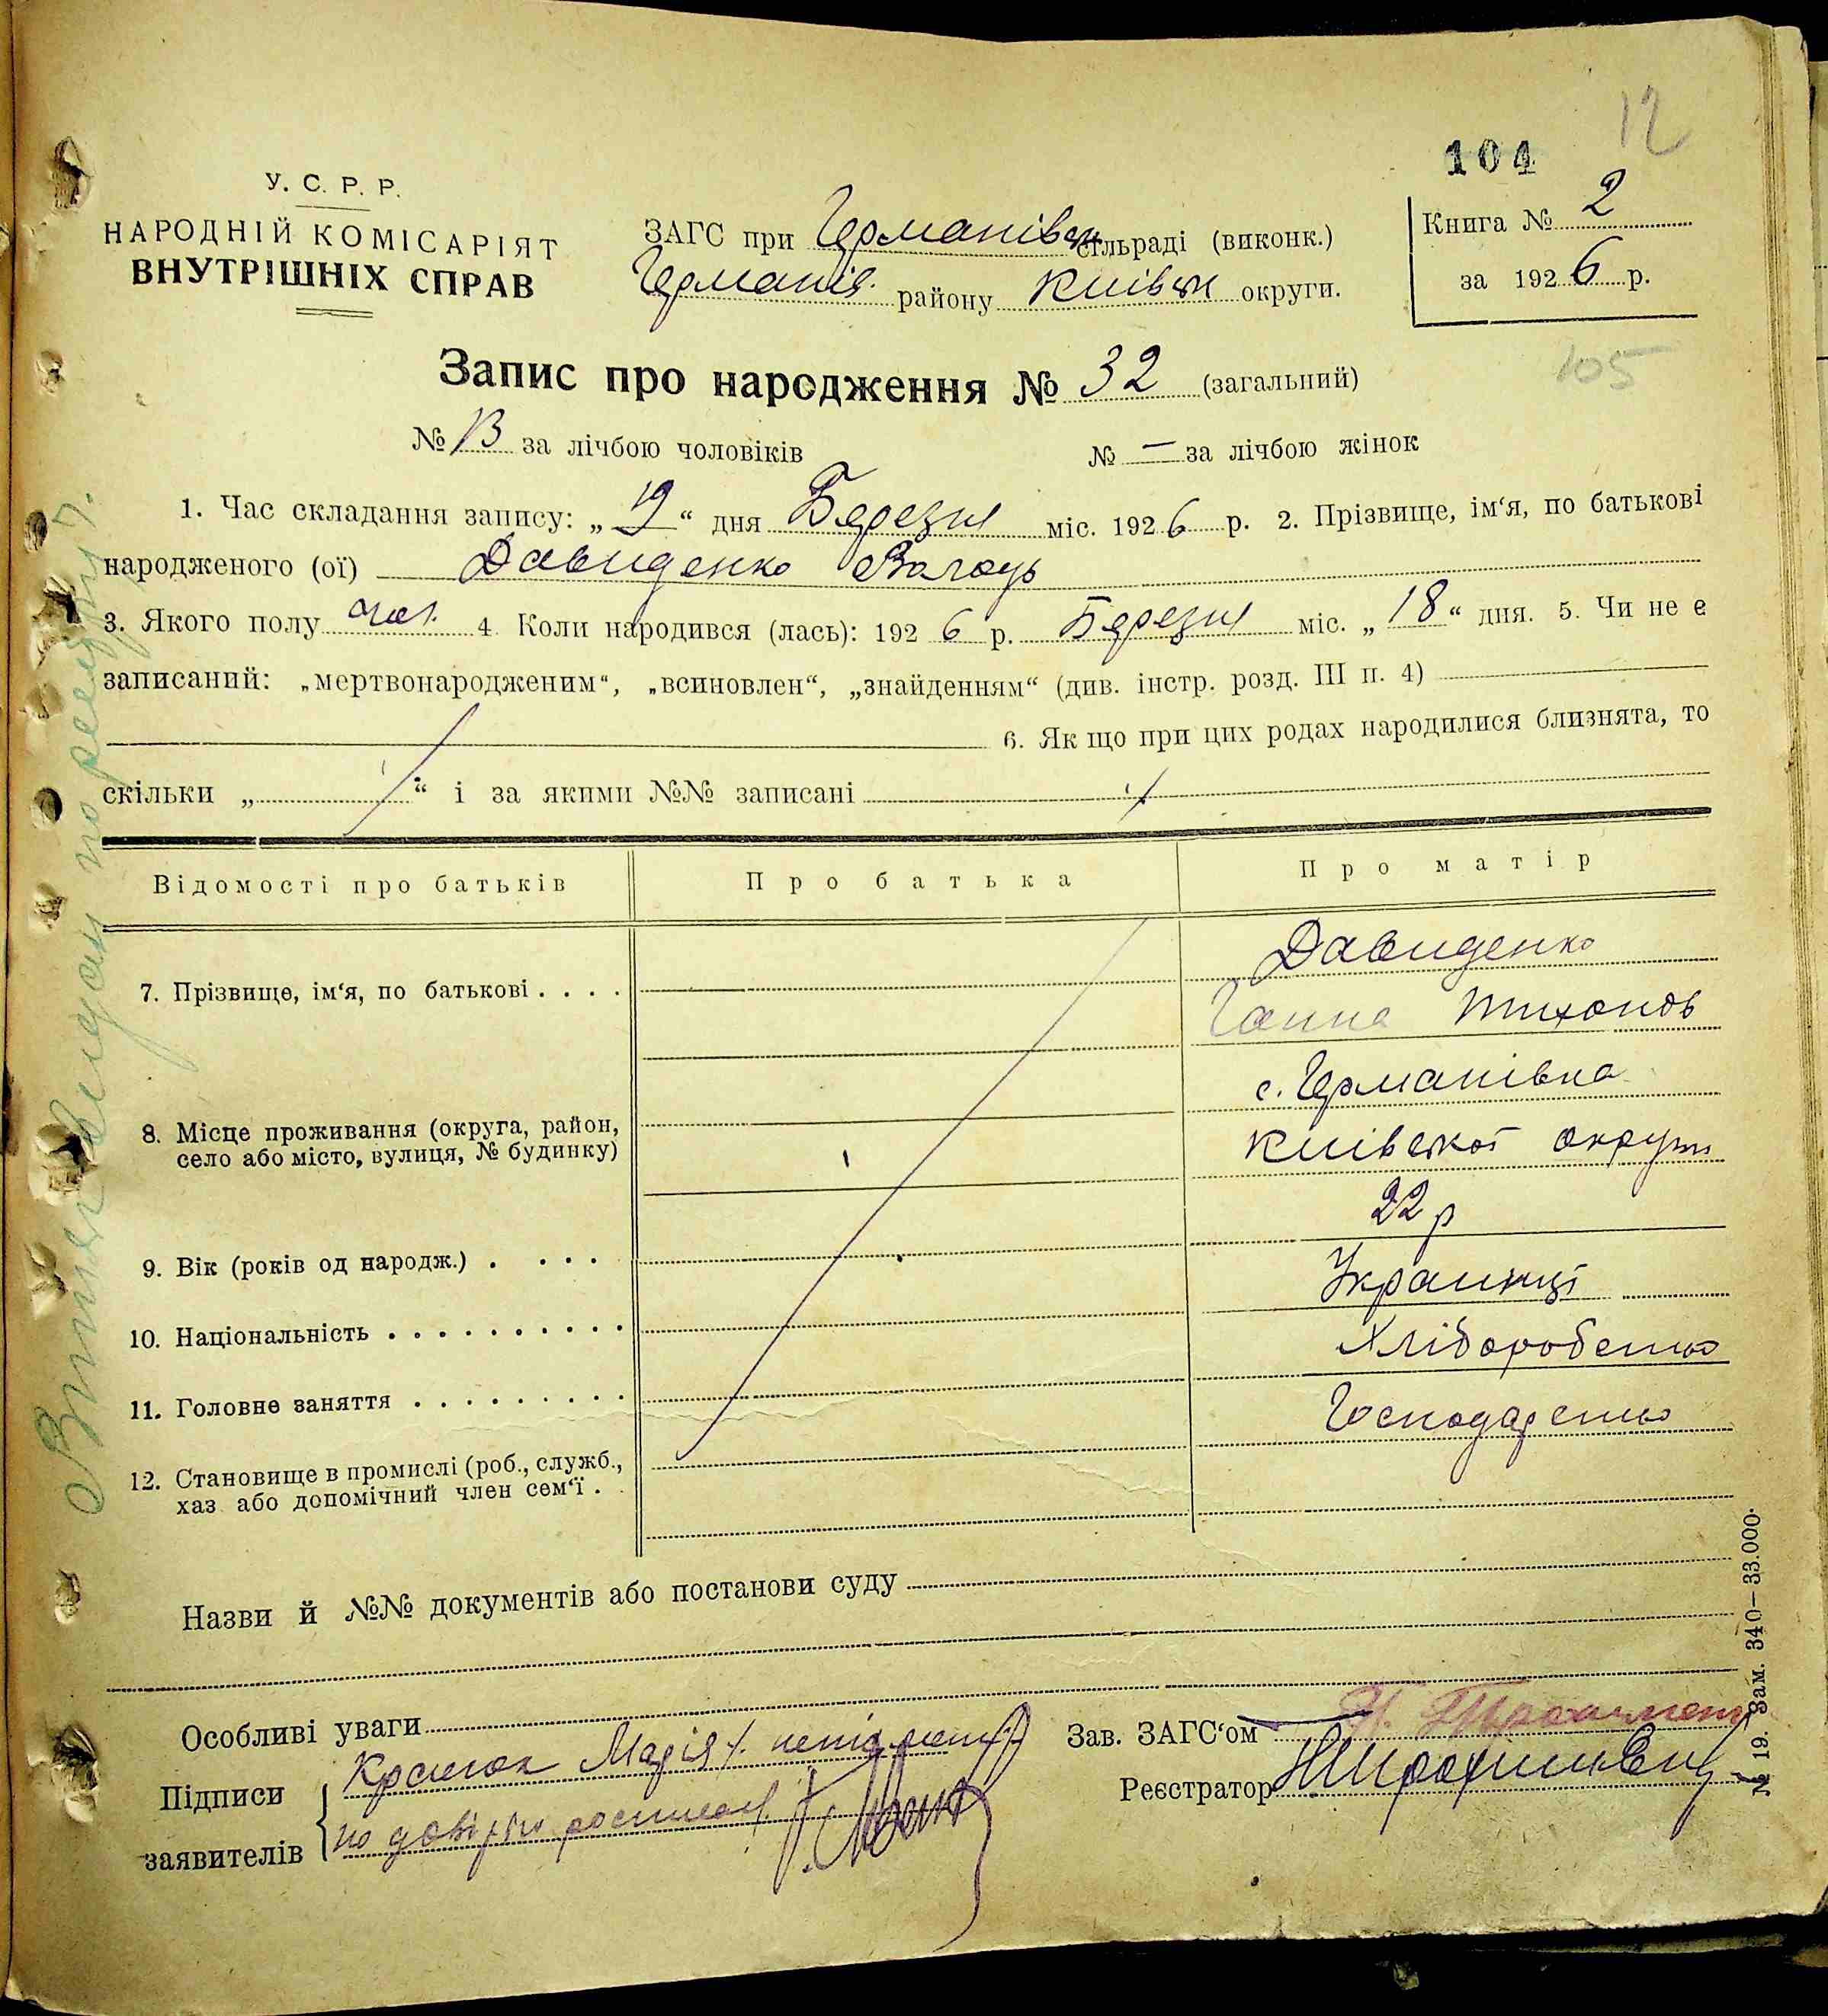 12
104
У. С. Р. Р.
НАРОДНІЙ КОМІСАРІЯТ
ВНУТРІШНІХ СПРАВ
ЗАГС при Германівськ сільраді (виконк.)
Германів. району Київськ округи.
Книга № 2
за 1926 р.
Запис про народження № 32 (загальний)
105
№ 13 за лічбою чоловіків № — за лічбою жінок
1. Час складання запису: „19“ дня Березня міс. 1926 р. 2. Прізвище, ім‘я, по батькові
народженого (ої) Давиденко
3. Якого полу чол. 4. Коли народився (лась): 1926 р. Березня міс. „18“ дня. 5. Чи не є
записаний: „мертвонародженим“, „всиновлен“, „знайденням“ (див. інстр. розд. III п. 4)
6. Як що при цих родах народилися близнята, то
скільки „ “ і за якими №№ записані
Відомості про батьків Про батька Про матір
7. Прізвище, ім‘я, по батькові . . . . Давиденко
Ганна Тихонов
8. Місце проживання (округа, район, с. Германівка
село або місто, вулиця, № будинку) Київської округи
9. Вік (років од народж.) . . . . 22 р
10. Національність . . . . . . . . . . Українці
11. Головне заняття . . . . . . . . . Хліборобство
12. Становище в промислі (роб., служб.,
хаз. або допомічний член сем‘ї .
Назви й №№ документів або постанови суду
Особливі уваги
Зав. ЗАГС‘ом
Підписи Марія
Реєстратор
заявителів по
№ 19. Зам. 340—33.000.